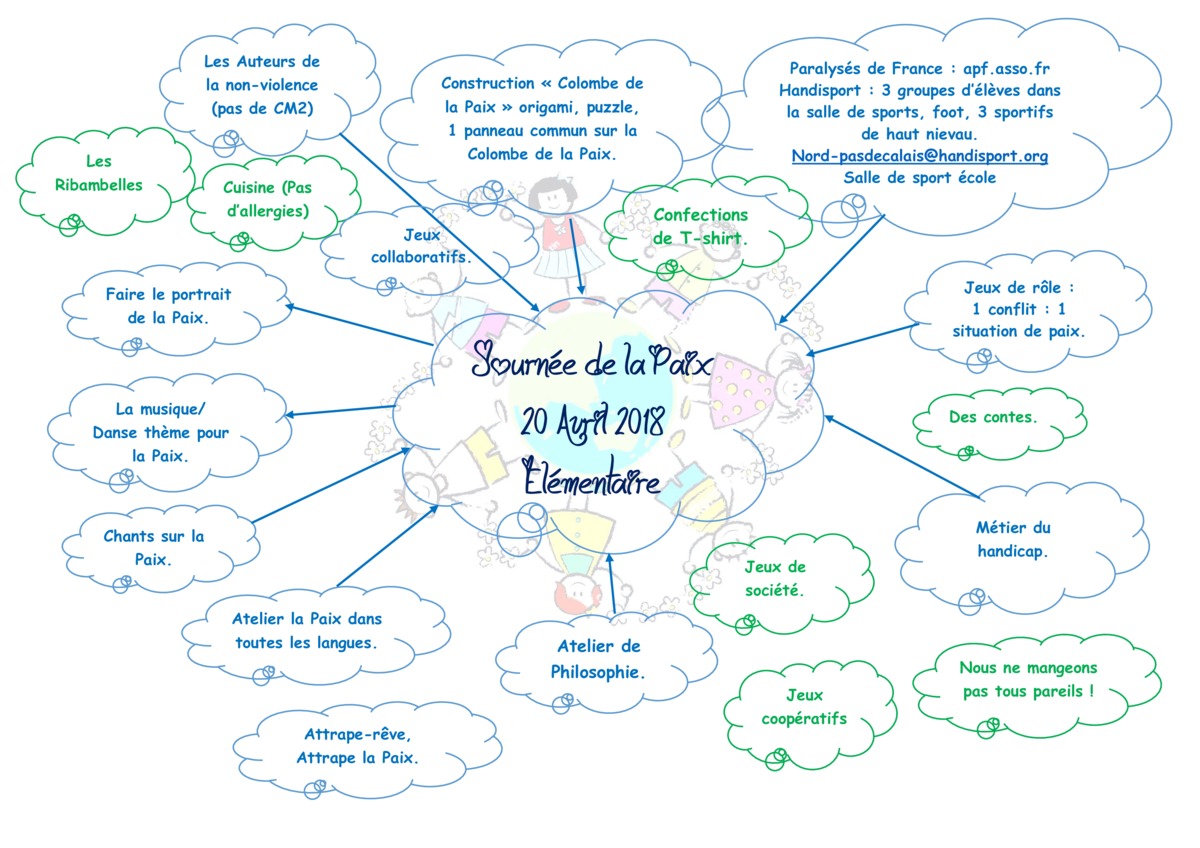 Les Auteurs de
la non-violence
(pas de CM2)
Construction « Colombe de
la Paix » origami, puzzle,
1 panneau commun sur la
Colombe de la Paix.
Paralysés de France : apf.asso.fr
Handisport : 3 groupes d'élèves dans
la salle de sports, foot, 3 sportifs
de haut nievau.
Nord-pasdecalais@handisport.org
Salle de sport école
Les
Ribambelles
Cuisine (Pas
d'allergies)
Jeux
collaboratifs.
Confections
de T-shirt.
Faire le portrait
de la Paix.
Jeux de rôle :
1 conflit : 1
situation de paix.
Journée de la Paix
20 Avril 2018
Elémentaire
La musique/
Danse thème pour
la Paix.
Des contes.
Chants sur la
Paix.
Métier du
handicap.
Jeux de
société.
Atelier la Paix dans
toutes les langues.
Atelier de
Philosophie.
Nous ne mangeons
pas tous pareils !
Jeux
coopératifs
Attrape-rêve,
Attrape la Paix.